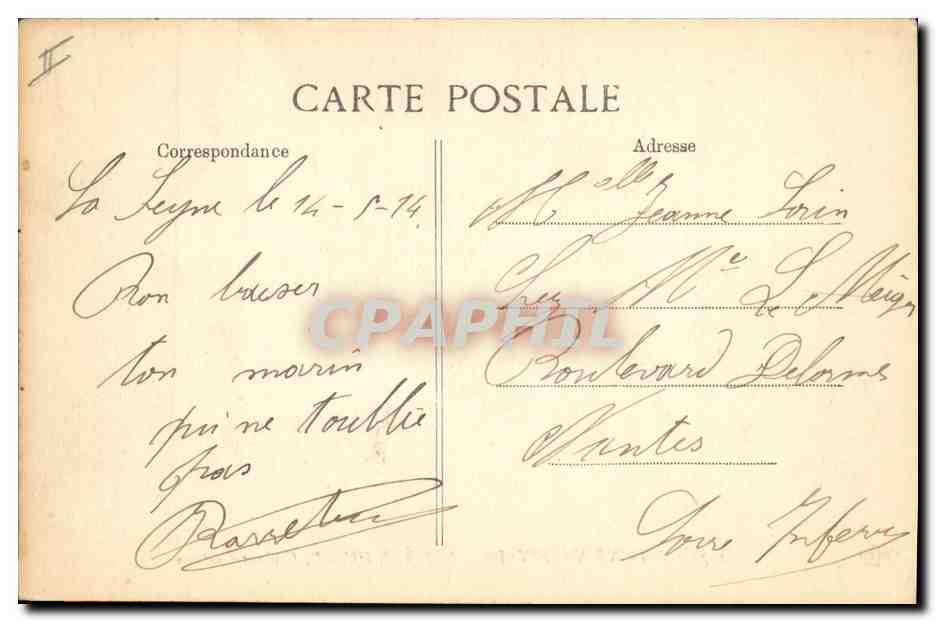 II
CARTE POSTALE
Correspondance
La Seyne le 14-5-14
Bon baiser
ton marin
qui ne t'oublie
pas
Adresse
Melle Jeanne Lorin
Chez Me Le
Boulevard Delorme
Nantes
Loire Infer
CPAPHIL